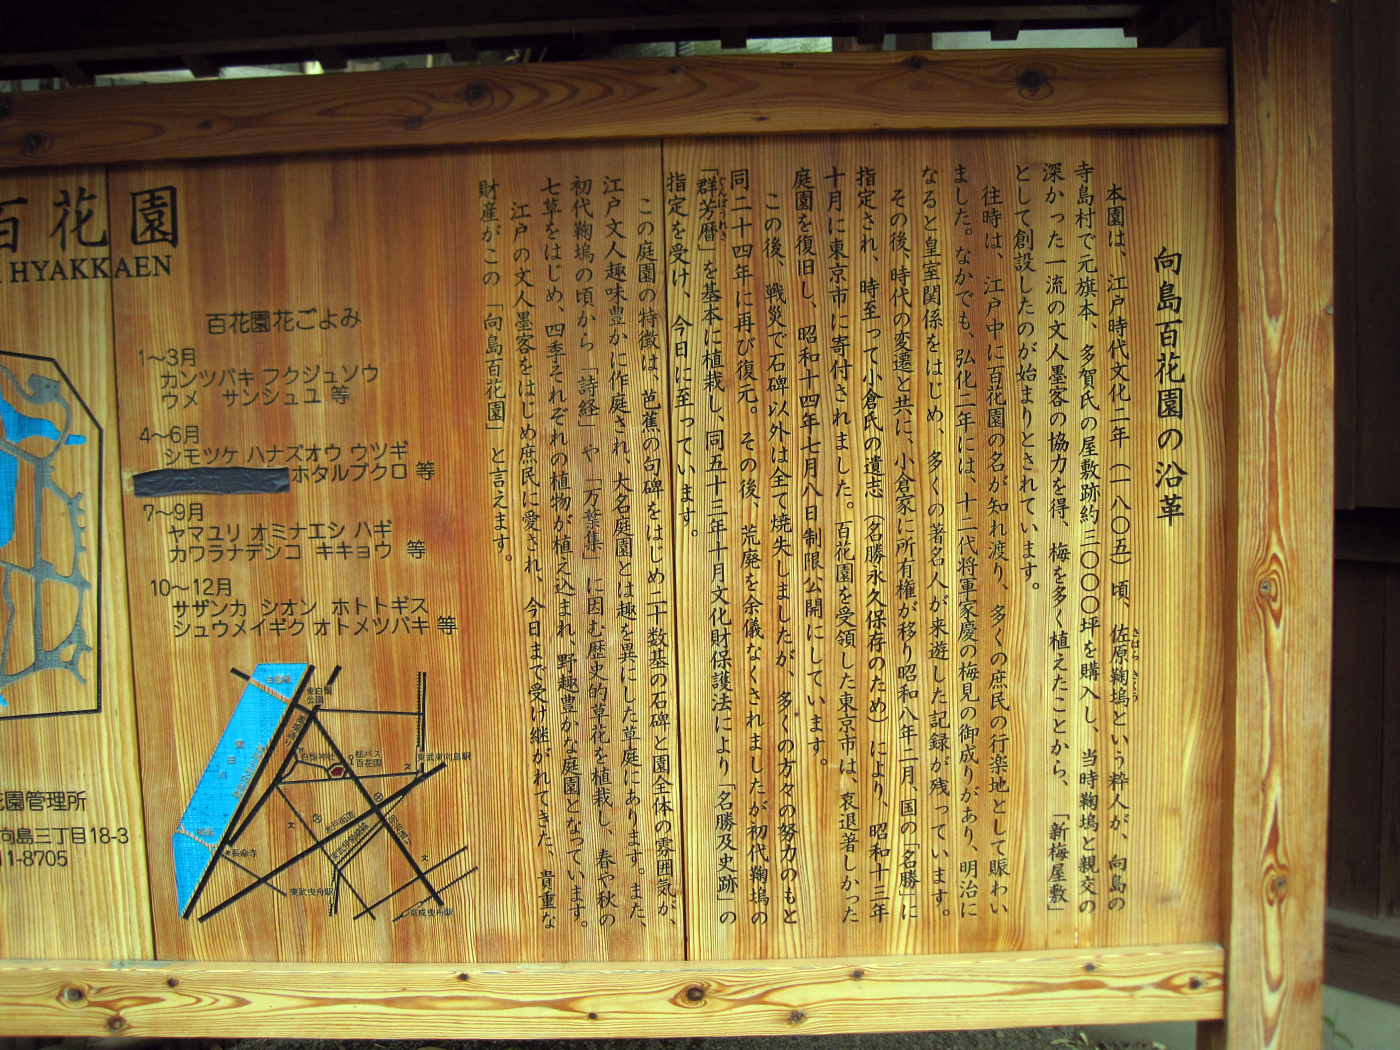 向島百花園の沿革
本園は、江戸時代文化二年（一八〇五）頃、佐原鞠塢という粋人が、向島の
寺島村で元旗本、多賀氏の屋敷跡約三〇〇〇坪を購入し、当時鞠塢と親交の
深かった一流の文人墨客の協力を得、梅を多く植えたことから、「新梅屋敷」
として創設したのが始まりとされています。
往時は、江戸中に百花園の名が知れ渡り、多くの庶民の行楽地として賑わい
ました。なかでも、弘化二年には、十二代将軍家慶の梅見の御成りがあり、明治に
なると皇室関係をはじめ、多くの著名人が来遊した記録が残っています。
その後、時代の変遷と共に、小倉家に所有権が移り昭和八年二月、国の「名勝」に
指定され、時至って小倉氏の遺志（名勝永久保存のため）により、昭和十三年
十月に東京市に寄付されました。百花園を受領した東京市は、衰退著しかった
庭園を復旧し、昭和十四年七月八日制限公開にしています。
この後、戦災で石碑以外は全て焼失しましたが、多くの方々の努力のもと
同二十四年に再び復元。その後、荒廃を余儀なくされましたが初代鞠塢の
「群芳暦」を基本に植栽し、同五十三年十月文化財保護法により「名勝及史跡」の
指定を受け、今日に至っています。
この庭園の特徴は、芭蕉の句碑をはじめ二十数基の石碑と園全体の雰囲気が、
江戸文人趣味豊かに作庭され、大名庭園とは趣を異にした草庭にあります。また、
初代鞠塢の頃から「詩経」や「万葉集」に因む歴史的草花を植栽し、春や秋の
七草をはじめ、四季それぞれの植物が植え込まれ、野趣豊かな庭園となっています。
江戸の文人墨客をはじめ庶民に愛され、今日まで受け継がれてきた、貴重な
財産がこの「向島百花園」と言えます。
百花園
HYAKKAEN
百花園花ごよみ
1〜3月
カンツバキ フクジュソウ
ウメ サンシュユ 等
4〜6月
シモツケ ハナズオウ ウツギ
ホタルブクロ 等
7〜9月
ヤマユリ オミナエシ ハギ
カワラナデシコ キキョウ 等
10〜12月
サザンカ シオン ホトトギス
シュウメイギク オトメツバキ 等
東白鬚
公園
白鬚神社
都バス
百花園
東武東向島駅
長命寺
東武曳舟駅
京成曳舟駅
花園管理所
向島三丁目18-3
11-8705